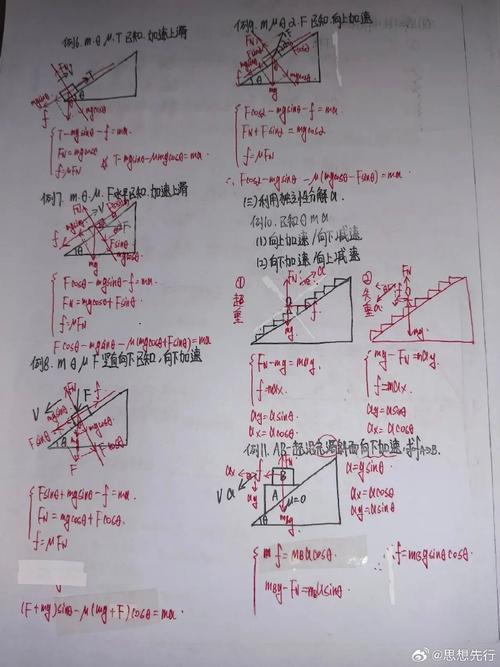 例6. m θ μ. T 已知. 加速上滑
T-mgsinθ-f=ma.
FN=mgcosθ
f=μFN
T-mgsinθ-μmgcosθ=ma.
例7. m. θ. μ. F水平已知. 加速上滑
Fcosθ-mgsinθ-f=ma.
FN=mgcosθ+Fsinθ
f=μFN
Fcosθ-mgsinθ-μ(mgcosθ+Fsinθ)=ma
例8. m θ μ F 竖直向下已知, 向下加速
Fsinθ+mgsinθ-f=ma
FN=mgcosθ+Fcosθ
f=μFN
(F+mg)sinθ-μ(mg+F)cosθ=ma
例9. m μ θ α. F 已知. 向上加速
Fcosα-mgsinθ-f=ma
FN+Fsinα=mgcosα
f=μFN
∴ Fcosα-mgsinθ-μ(mgcosθ-Fsinθ)=ma
(三)利用独立性分解a.
例10. 已知θ m a
(1)向上加速/向下减速
(2)向下加速/向上减速
① 超重
FN-mg=may
f=max
ay=asinθ
ax=acosθ
② 失重
mg-FN=may
f=max
ay=asinθ
ax=acosθ
例11. AB一起沿光滑斜面向下加速, 求fA→B.
A B μ=0
a=gsinθ
ax=acosθ
ay=asinθ
f=mBacosθ.
mBg-FN=mBasinθ
∴f=mBgsinθcosθ.
@思想先行